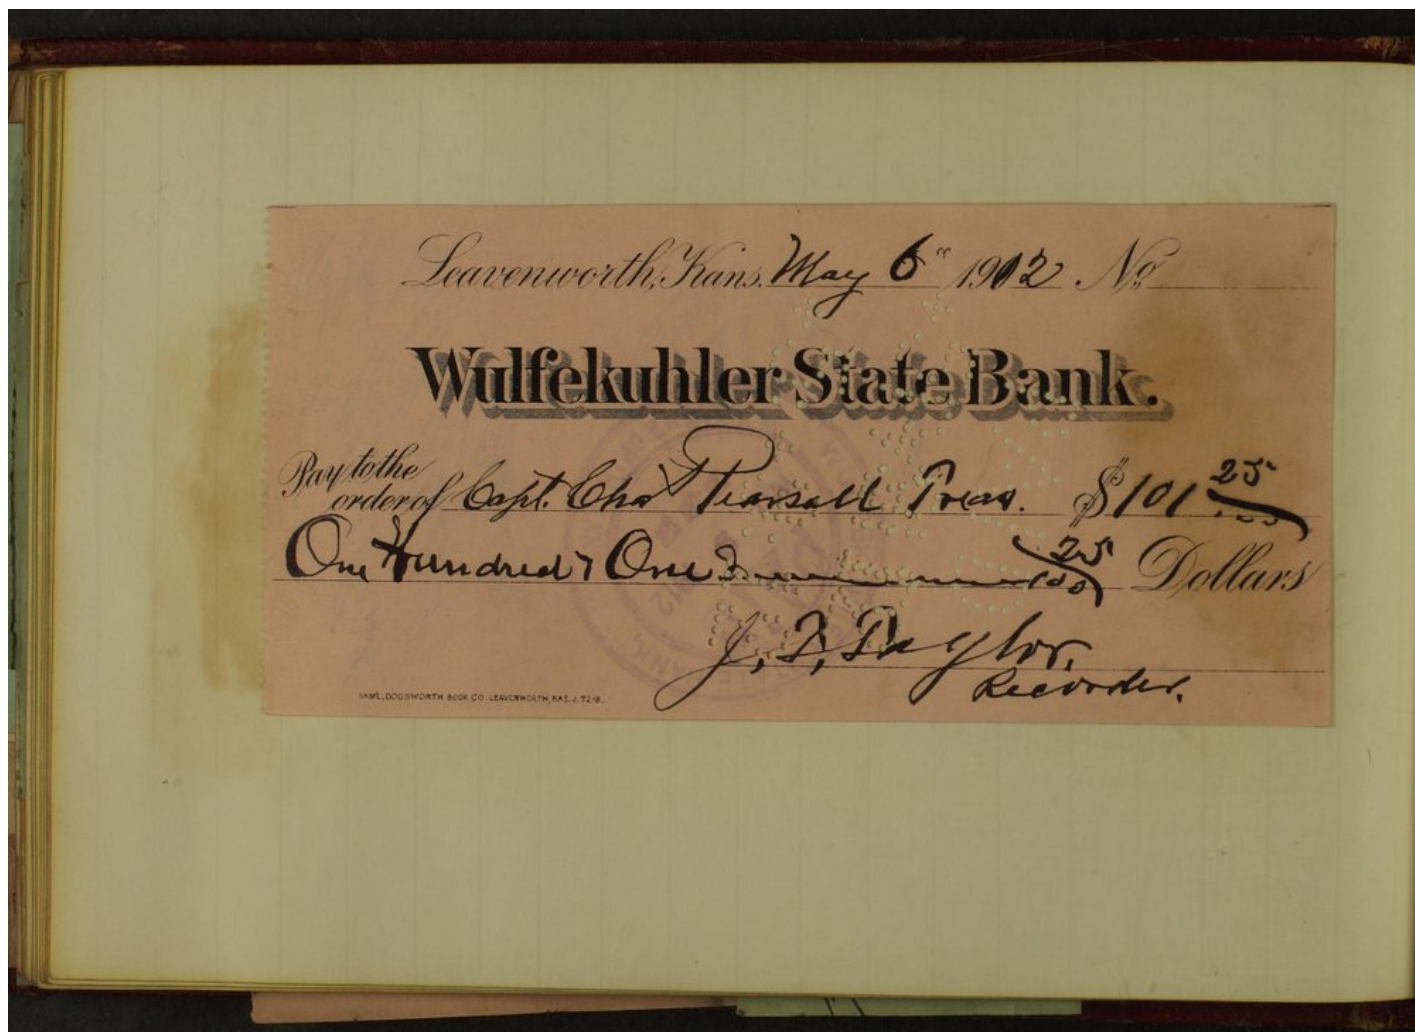 Leavenworth, Kans. May 6" 1912 No.
Wulfekuhler State Bank.
Pay to the
order of Capt. Chas Pearsall Treas. $101 25
One Hundred & One 25/100 Dollars
J. F. Taylor,
Recorder.
SAM'L DODSWORTH BOOK CO. LEAVENWORTH, KAS.